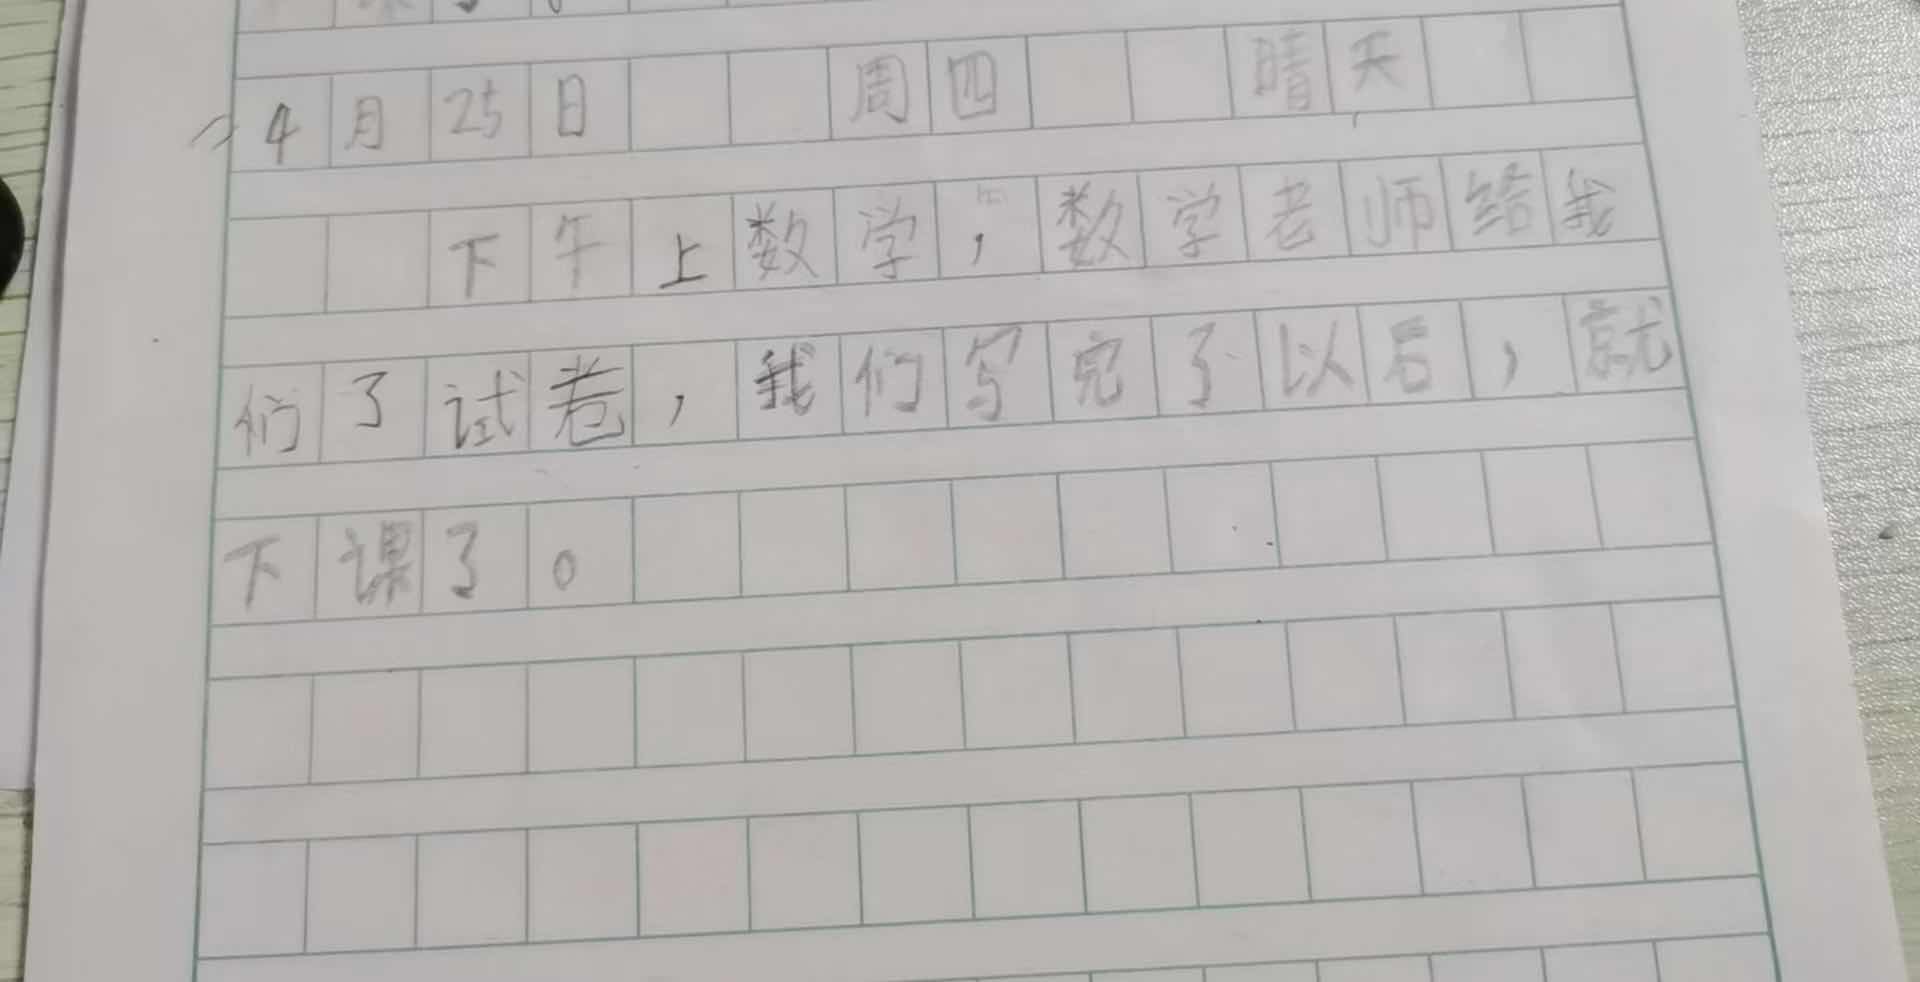 4月25日 周四 晴天
下午上数学，数学老师给我
们了试卷，我们写完了以后，就
下课了。